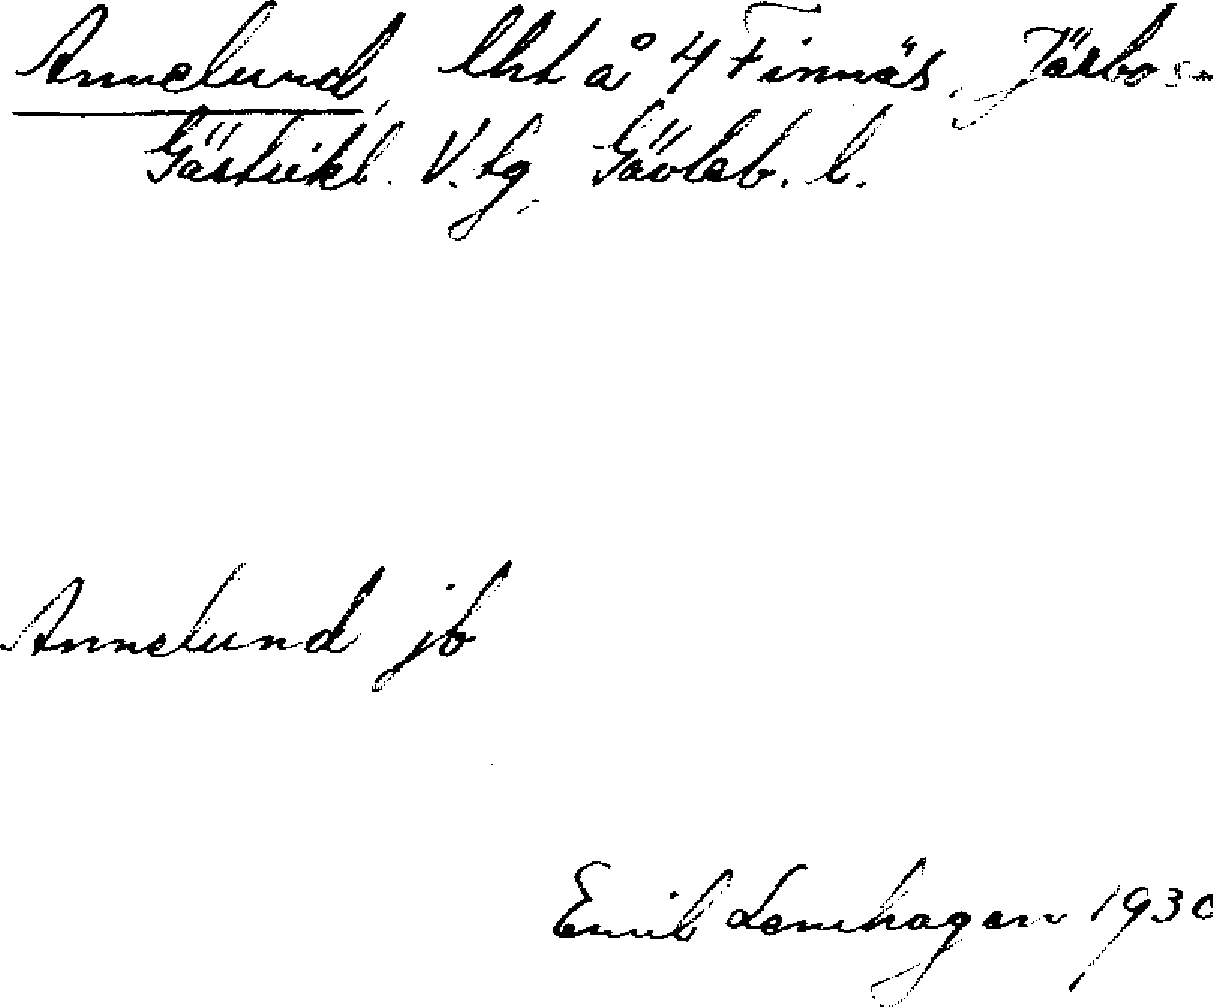 Annelund, lht å 4 Finnäs, Järbo sn
Gästrikl. V. tg, Gävleb. l.
Annelund jb
Emil Lenhagen 1930